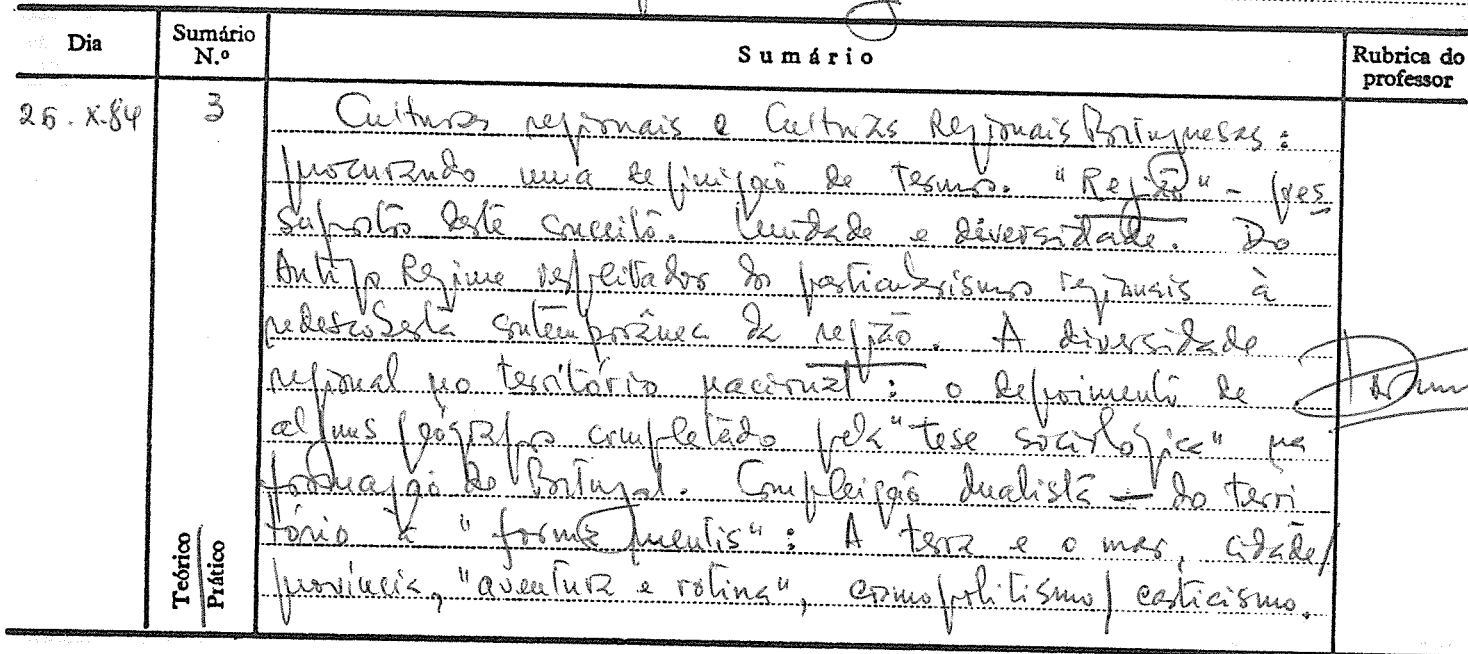 Dia Sumário N.º Sumário Rubrica do professor
26. X-84 3 Culturas regionais e Culturas Regionais Portuguesas:
procurando uma definição de termos. "Região" - pres
supostos deste conceito. Unidade e diversidade. Do
Antigo Regime respeitador dos particularismos regionais à
redescoberta contemporânea da região. A diversidade
regional no território nacional: o depoimento de
alguns geógrafos completado pela "tese sociológica" na
formação de Portugal. Compleição dualista — do terri
tório à "forma mentis": A terra e o mar, cidade/
província, "aventura e rotina", cosmopolitismo/casticismo.
Teórico
Prático